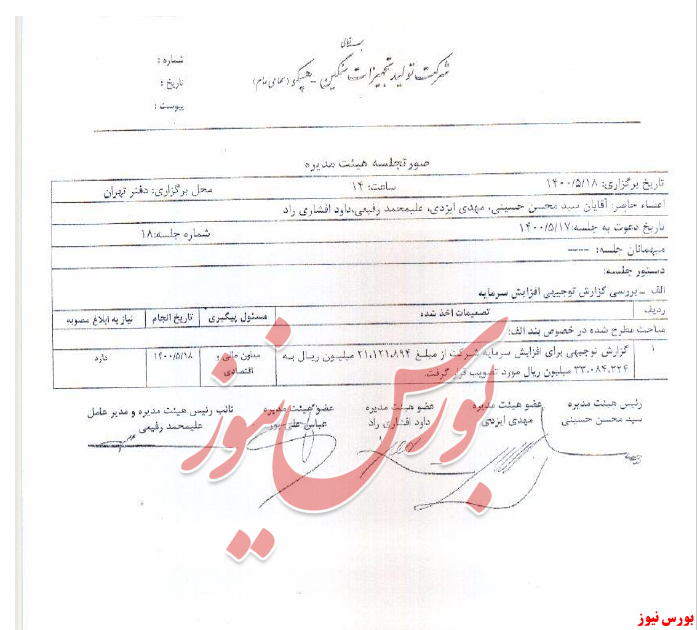 بسمه تعالی
شرکت تولید تجهیزات سنگین - هپکو (سهامی عام)
شماره :
تاریخ :
پیوست :
صورتجلسه هیئت مدیره
تاریخ برگزاری: ۱۴۰۰/۵/۱۸ ساعت: ۱۴ محل برگزاری: دفتر تهران
اعضاء حاضر: آقایان سید محسن حسینی، مهدی ایزدی، علیمحمد رفیعی، داود افشاری راد
تاریخ دعوت به جلسه: ۱۴۰۰/۵/۱۷ شماره جلسه: ۱۸
میهمانان جلسه: ----
دستور جلسه:
الف - بررسی گزارش توجیهی افزایش سرمایه
ردیف تصمیمات اخذ شده مسئول پیگیری تاریخ انجام نیاز به ابلاغ مصوبه
مباحث مطرح شده در خصوص بند الف:
۱ گزارش توجیهی برای افزایش سرمایه شرکت از مبلغ ۲۱،۱۲۱،۸۹۴ میلیون ریال به معاون مالی و ۱۴۰۰/۵/۱۸ دارد
۳۳،۰۸۴،۳۲۴ میلیون ریال مورد تصویب قرار گرفت. اقتصادی
رئیس هیئت مدیره عضو هیئت مدیره عضو هیئت مدیره عضو هیئت مدیره نائب رئیس هیئت مدیره و مدیر عامل
سید محسن حسینی مهدی ایزدی داود افشاری راد عباس علی پور علیمحمد رفیعی
بورس نیوز
بورس نیوز